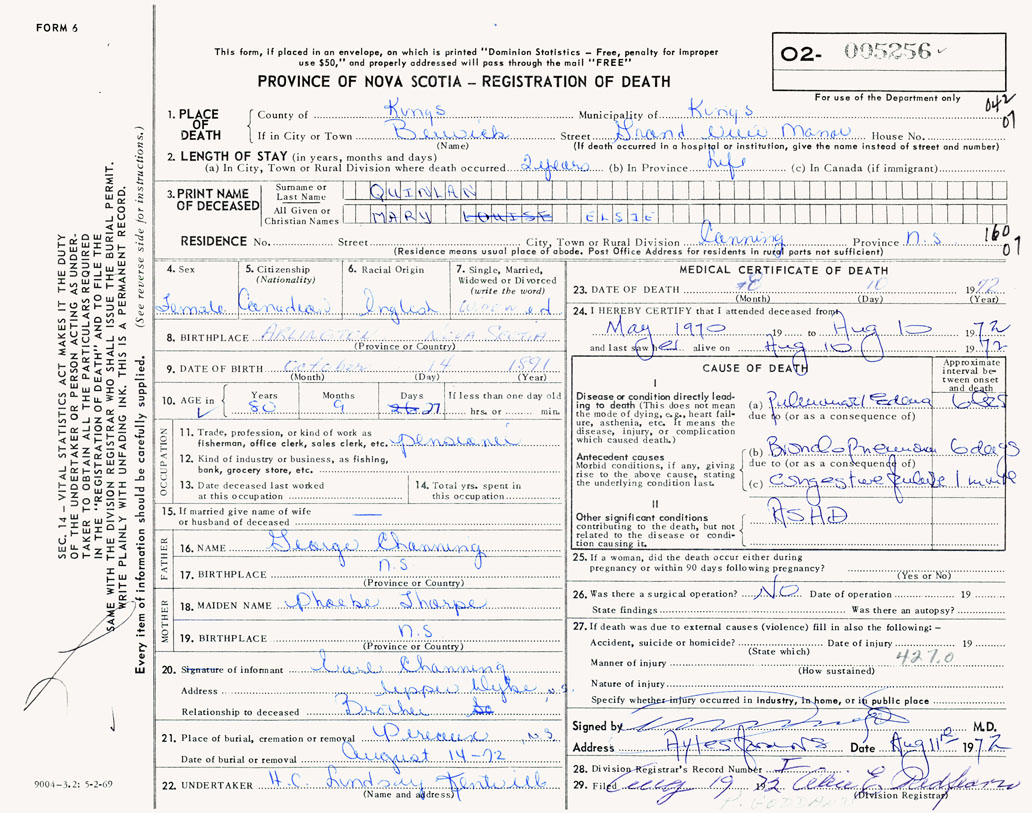 FORM 6
This form, if placed in an envelope, on which is printed "Dominion Statistics – Free, penalty for improper
use $50," and properly addressed will pass through the mail "FREE"
PROVINCE OF NOVA SCOTIA – REGISTRATION OF DEATH
O2- 005256
For use of the Department only
042
07
SEC. 14 – VITAL STATISTICS ACT MAKES IT THE DUTY
OF THE UNDERTAKER OR PERSON ACTING AS UNDER-
TAKER TO OBTAIN ALL THE PARTICULARS REQUIRED
IN THE "REGISTRATION OF DEATH" AND TO FILE THE
SAME WITH THE DIVISION REGISTRAR WHO SHALL ISSUE THE BURIAL PERMIT.
WRITE PLAINLY WITH UNFADING INK. THIS IS A PERMANENT RECORD.
Every item of information should be carefully supplied. (See reverse side for instructions.)
1. PLACE OF DEATH
County of Kings Municipality of Kings
If in City or Town Berwick Street Grand View Manor House No.
(Name) (If death occurred in a hospital or institution, give the name instead of street and number)
2. LENGTH OF STAY (in years, months and days)
(a) In City, Town or Rural Division where death occurred 2 years (b) In Province Life (c) In Canada (if immigrant)
3. PRINT NAME OF DECEASED
Surname or Last Name QUINLAN
All Given or Christian Names MARY LOUISE ELSIE
RESIDENCE No. Street City, Town or Rural Division Canning Province N.S
160
07
(Residence means usual place of abode. Post Office Address for residents in rural parts not sufficient)
4. Sex
Female
5. Citizenship
(Nationality)
Canadian
6. Racial Origin
English
7. Single, Married,
Widowed or Divorced
(write the word)
Widowed
8. BIRTHPLACE ARLINGTON NOVA SCOTIA
(Province or Country)
9. DATE OF BIRTH October 14 1891
(Month) (Day) (Year)
10. AGE in Years 80 Months 9 Days 27 If less than one day old
hrs. or min.
OCCUPATION
11. Trade, profession, or kind of work as
fisherman, office clerk, sales clerk, etc. pensioner
12. Kind of industry or business, as fishing,
bank, grocery store, etc.
13. Date deceased last worked
at this occupation
14. Total yrs. spent in
this occupation
15. If married give name of wife
or husband of deceased —
FATHER
16. NAME George Channing
17. BIRTHPLACE N.S
(Province or Country)
MOTHER
18. MAIDEN NAME Phoebe Thorpe
19. BIRTHPLACE N.S
(Province or Country)
20. Signature of informant Channing
Address Upper Dyke, N.S.
Relationship to deceased Brother
21. Place of burial, cremation or removal Pereaux, N.S.
Date of burial or removal August 14-72
22. UNDERTAKER H.C. Lindsay Kentville
(Name and address)
9004–3.2: 5-2-69
MEDICAL CERTIFICATE OF DEATH
23. DATE OF DEATH 8 10 1972
(Month) (Day) (Year)
24. I HEREBY CERTIFY that I attended deceased from
May 1970 19 to Aug 10 1972
and last saw her alive on Aug 10 1972
CAUSE OF DEATH
Approximate
interval be-
tween onset
and death
I
Disease or condition directly lead-
ing to death (This does not mean
the mode of dying, e.g., heart fail-
ure, asthenia, etc. It means the
disease, injury, or complication
which caused death.)
(a) Pulmonary Edema
due to (or as a consequence of)
Antecedent causes
Morbid conditions, if any, giving
rise to the above cause, stating
the underlying condition last.
(b) Bronchopneumonia 6 days
due to (or as a consequence of)
(c) Congestive failure 1 month
II
Other significant conditions
contributing to the death, but not
related to the disease or condi-
tion causing it.
ASHD
25. If a woman, did the death occur either during
pregnancy or within 90 days following pregnancy?
(Yes or No)
26. Was there a surgical operation? NO Date of operation 19
State findings Was there an autopsy?
27. If death was due to external causes (violence) fill in also the following: –
Accident, suicide or homicide? Date of injury 19
(State which)
Manner of injury 427.0
(How sustained)
Nature of injury
Specify whether injury occurred in industry, in home, or in public place
Signed by M.D.
Address Aylesford NS Date Aug 11th 1972
28. Division Registrar's Record Number
29. Filed Aug 19 1972
(Division Registrar)